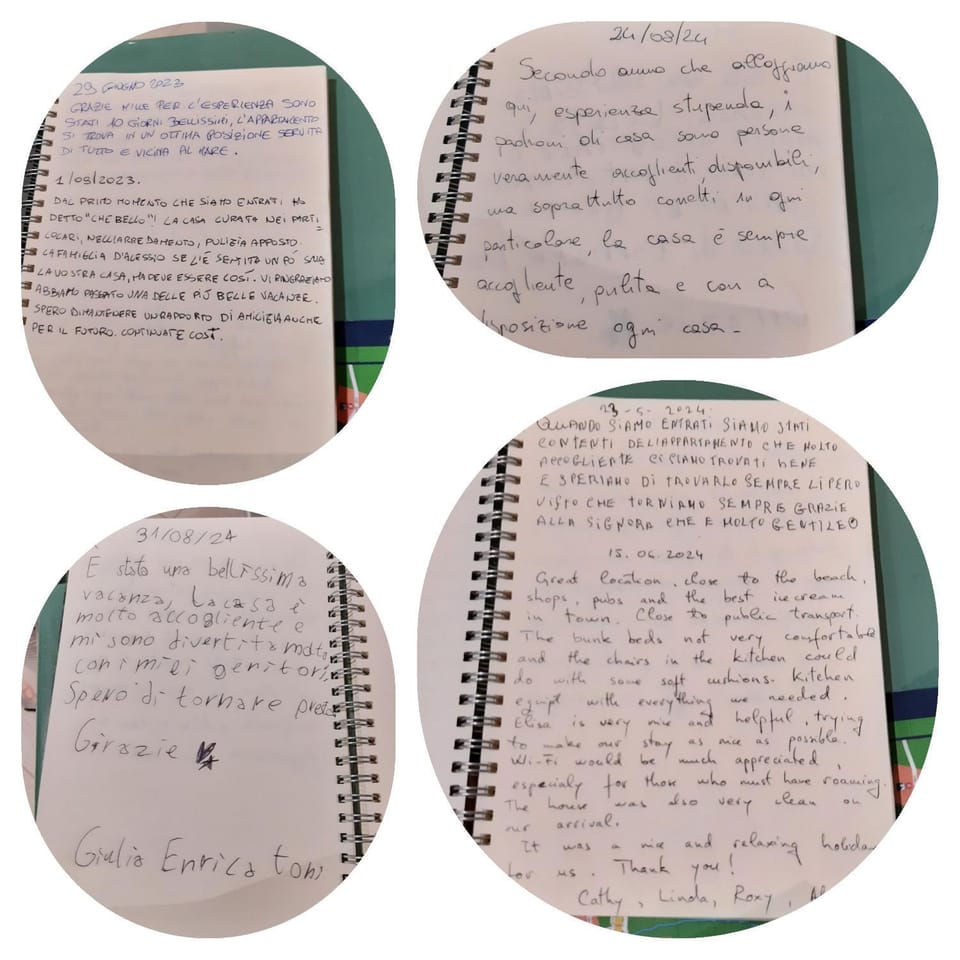 29 GIUGNO 2023
GRAZIE MILLE PER L'ESPERIENZA SONO
STATI 10 GIORNI BELLISSIMI, L'APPARTAMENTO
SI TROVA IN UN OTTIMA POSIZIONE SERVITA
DI TUTTO E VICINA AL MARE.
1/09/2023.
DAL PRIMO MOMENTO CHE SIAMO ENTRATI HO
DETTO "CHE BELLO"! LA CASA CURATA NEI PARTI
COLARI, NELL'ARREDAMENTO, PULIZIA APPOSTO.
LA FAMIGLIA D'ALESSIO SE L'È SENTITA UN PÓ SUA
LA VOSTRA CASA, MA DEVE ESSERE COSÍ. VI RINGRAZIAMO
ABBIAMO PASSATO UNA DELLE PIÙ BELLE VACANZE.
SPERO DI MANTENERE UN RAPPORTO DI AMICIZIA ANCHE
PER IL FUTURO. CONTINUATE COSÍ.
24/08/24
Secondo anno che alloggiamo
qui, esperienza stupenda, i
padroni di casa sono persone
veramente accoglienti, disponibili,
ma soprattutto corretti in ogni
particolare, la casa è sempre
accogliente, pulita e con a
disposizione ogni casa -
31/08/24
È stata una bellissima
vacanza, la casa è
molto accogliente e
mi sono divertita molto
con i miei genitori.
Spero di tornare presto
Grazie
Giulia Enrica toni
23-5-2024.
QUANDO SIAMO ENTRATI SIAMO STATI
CONTENTI DELL'APPARTAMENTO CHE MOLTO
ACCOGLIENTE CI SIAMO TROVATI BENE
E SPERIAMO DI TROVARLO SEMPRE LIPERO
VISTO CHE TORNIAMO SEMPRE GRAZIE
ALLA SIGNORA CHE E MOLTO GENTILE
15.06.2024
Great location, close to the beach,
shops, pubs and the best icecream
in town. Close to public transport.
The bunk beds not very comfortable
and the chairs in the kitchen could
do with some soft cushions. Kitchen
equipt with everything we needed.
Elisa is very nice and helpful, trying
to make our stay as nice as possible.
Wi-Fi would be much appreciated,
especialy for those who must have roaming.
The house was also very clean on
our arrival.
It was a nice and relaxing holiday
for us. Thank you!
Cathy, Linda, Roxy,